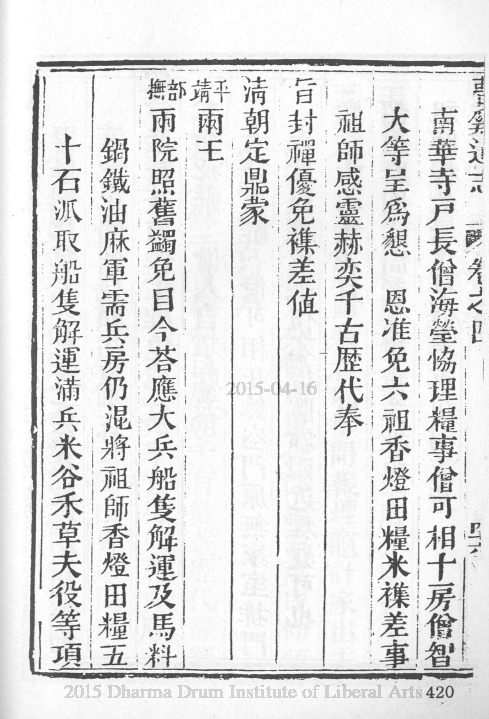 曹溪通志 卷之四 四六
南華寺戸長僧海瑩恊理糧事僧可相十房僧智
大等呈爲懇 恩准免六祖香燈田糧米襍差事
祖師感靈赫奕千古歴代奉
旨封禪優免襍差値
清朝定鼎蒙
平靖兩王
部撫兩院照舊蠲免目今荅應大兵船隻解運及馬料
鍋鐵油麻軍需兵房仍混將祖師香燈田糧五
十石派取船隻解運滿兵米谷禾草夫役等項
2015-04-16
2015 Dharma Drum Institute of Liberal Arts 420